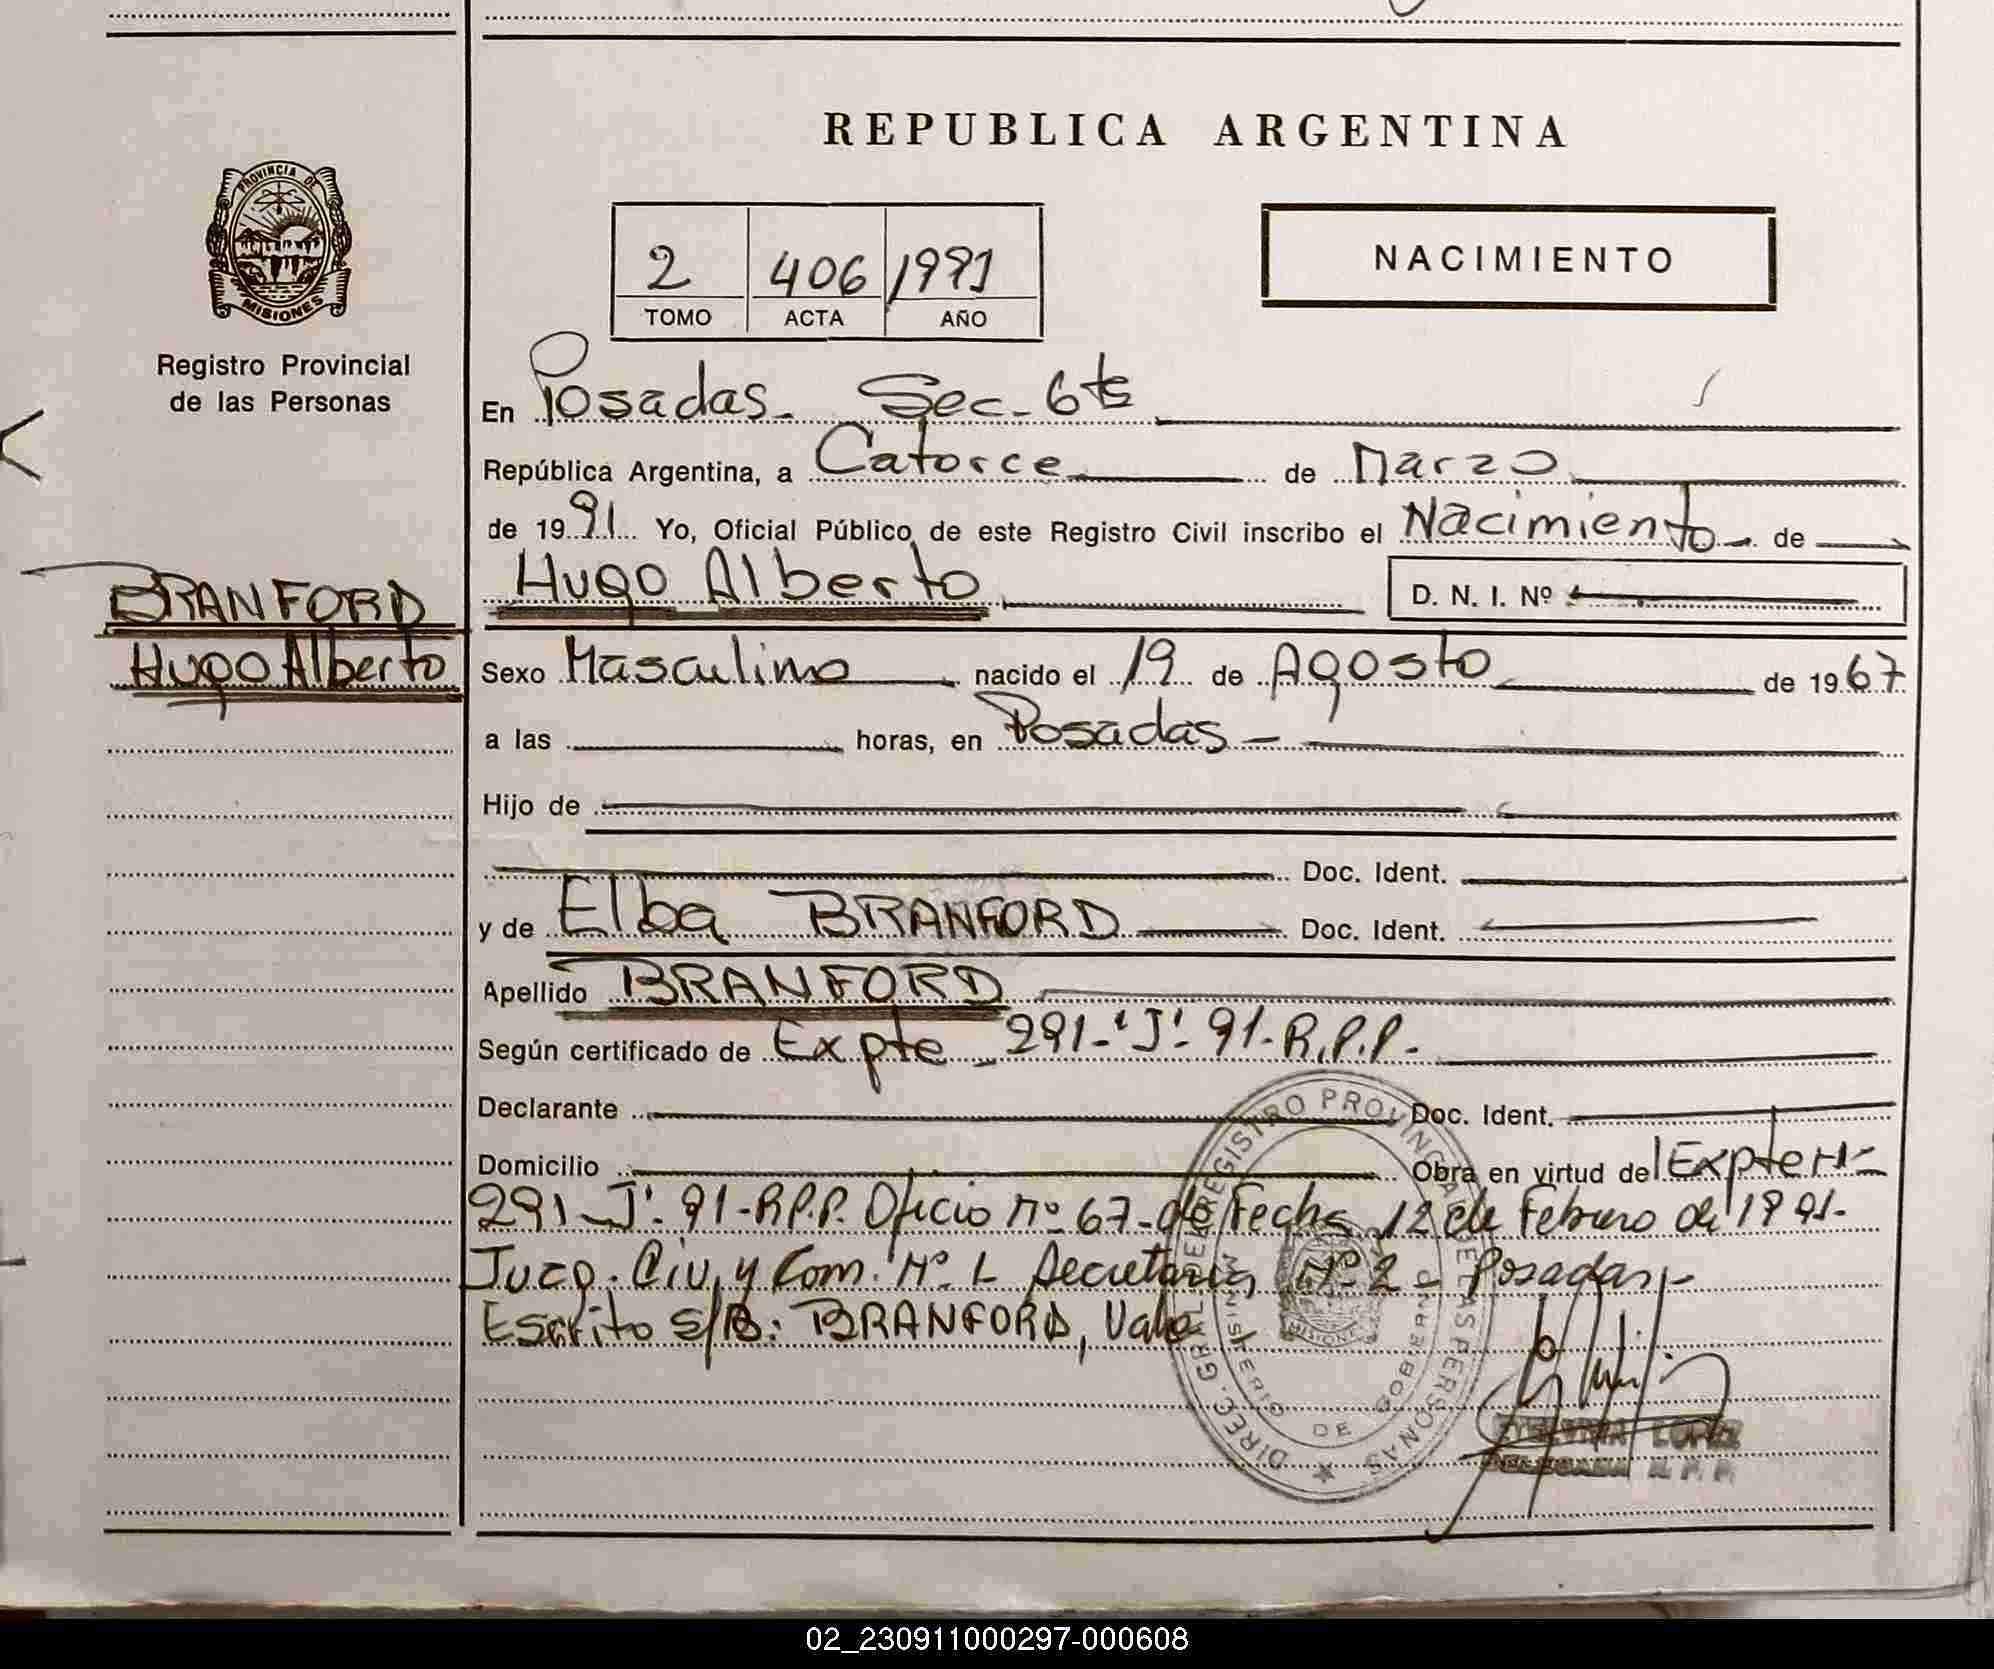 REPUBLICA ARGENTINA
PROVINCIA DE
MISIONES
2 406 1991
TOMO ACTA AÑO
NACIMIENTO
Registro Provincial
de las Personas
En Posadas - Sec - 6ta
República Argentina, a Catorce de Marzo
de 1991 Yo, Oficial Público de este Registro Civil inscribo el Nacimiento - de
BRANFORD
Hugo Alberto
Hugo Alberto D. N. I. Nº
Sexo Masculino nacido el 19 de Agosto de 1967
a las horas, en Posadas -
Hijo de
Doc. Ident.
y de Elba BRANFORD Doc. Ident.
Apellido BRANFORD
Según certificado de Expte - 291 - 'J' - 91 - R.P.P. -
Declarante Doc. Ident.
Domicilio Obra en virtud del Expte Nº
291 - J' - 91 - R.P.P. Oficio Nº 67 - de Fecha 12 de Febrero de 1991 -
Juzg. Civ. y Com. Nº 1 Secretaria Nº 2 - Posadas -
Escrito s/B: BRANFORD, Vale
DIREC. GRAL. DEL REGISTRO PROVINCIAL DE LAS PERSONAS
MINISTERIO DE GOBIERNO
MISIONES
LOPEZ
R. P. P.
02_230911000297-000608